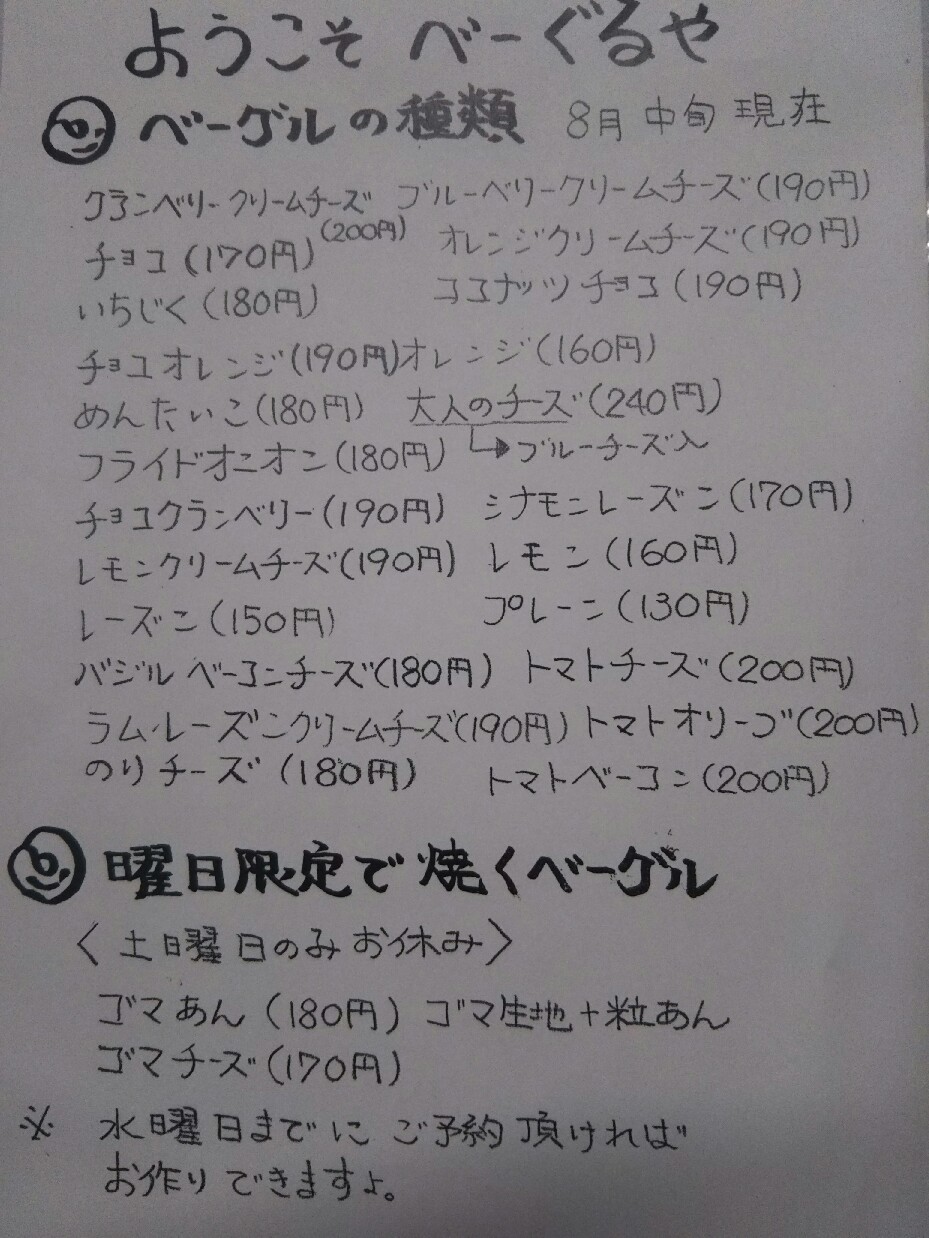 ようこそ べーぐるや
ベーグルの種類 8月中旬現在
クランベリークリームチーズ(200円) ブルーベリークリームチーズ(190円)
チョコ(170円) オレンジクリームチーズ(190円)
いちじく(180円) ココナッツチョコ(190円)
チョコオレンジ(190円) オレンジ(160円)
めんたいこ(180円) 大人のチーズ(240円)
フライドオニオン(180円) ブルーチーズ入
チョコクランベリー(190円) シナモンレーズン(170円)
レモンクリームチーズ(190円) レモン(160円)
レーズン(150円) プレーン(130円)
バジルベーコンチーズ(180円) トマトチーズ(200円)
ラム・レーズンクリームチーズ(190円) トマトオリーブ(200円)
のりチーズ(180円) トマトベーコン(200円)
曜日限定で焼くベーグル
〈土日曜日のみお休み〉
ゴマあん(180円) ゴマ生地+粒あん
ゴマチーズ(170円)
※ 水曜日までにご予約頂ければ
お作りできますよ。